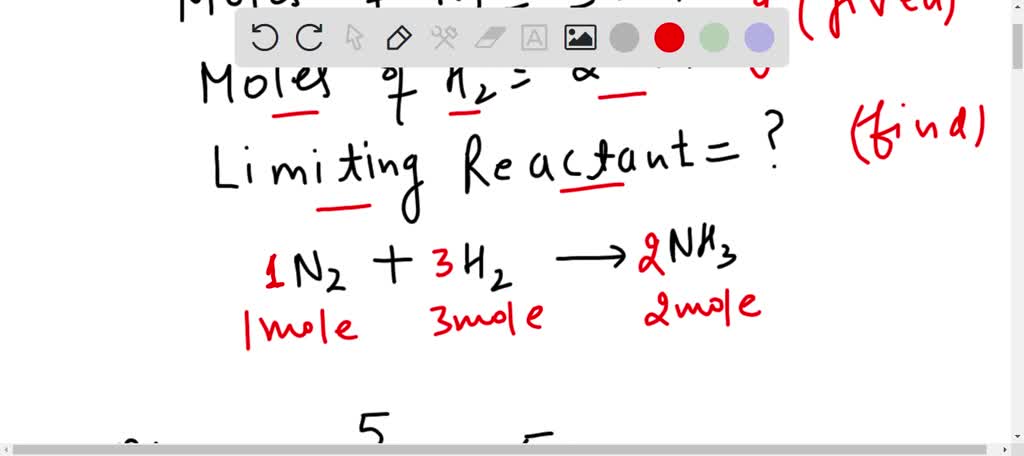 Moles of (given)
Moles of H2 = 2
Limiting Reactant = ? (find)
1N2 + 3H2 → 2NH3
1mole 3mole 2mole
5